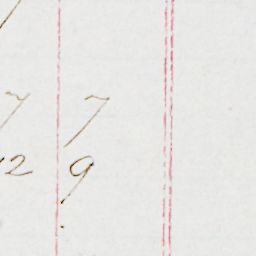 7 7
12 9